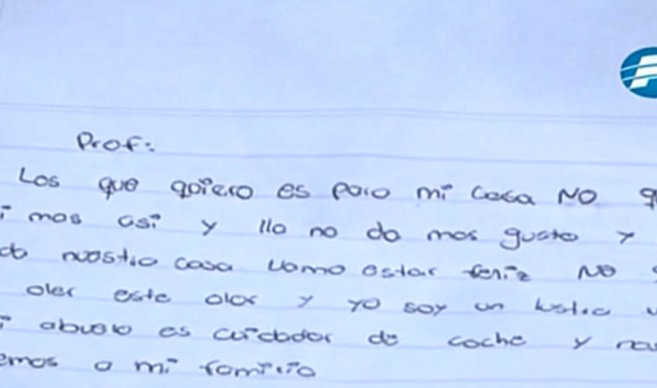 Prof:
Los que qoiero es paro mi casa NO q
i mos asi y llo no da mos gusto y
do noostra casa vamo estar feniz NO
oler este olor y yo soy un
i abuelo es cuidador de coche y
emos a mi familia